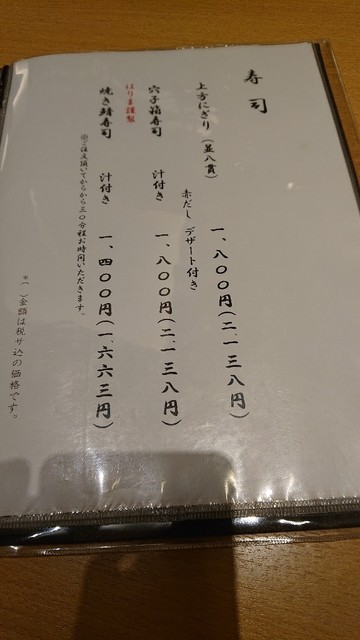 寿司
上方にぎり（並八貫）
赤だし デザート付き
一、八〇〇円（二、一三八円）
穴子箱寿司 汁付き 一、八〇〇円（二、一三八円）
はりま謹製
焼き鯖寿司 汁付き 一、四〇〇円（一、六六三円）
※ご注文頂いてからから三〇分程お時間いただきます。
＊（ ）金額は税サ込の価格です。